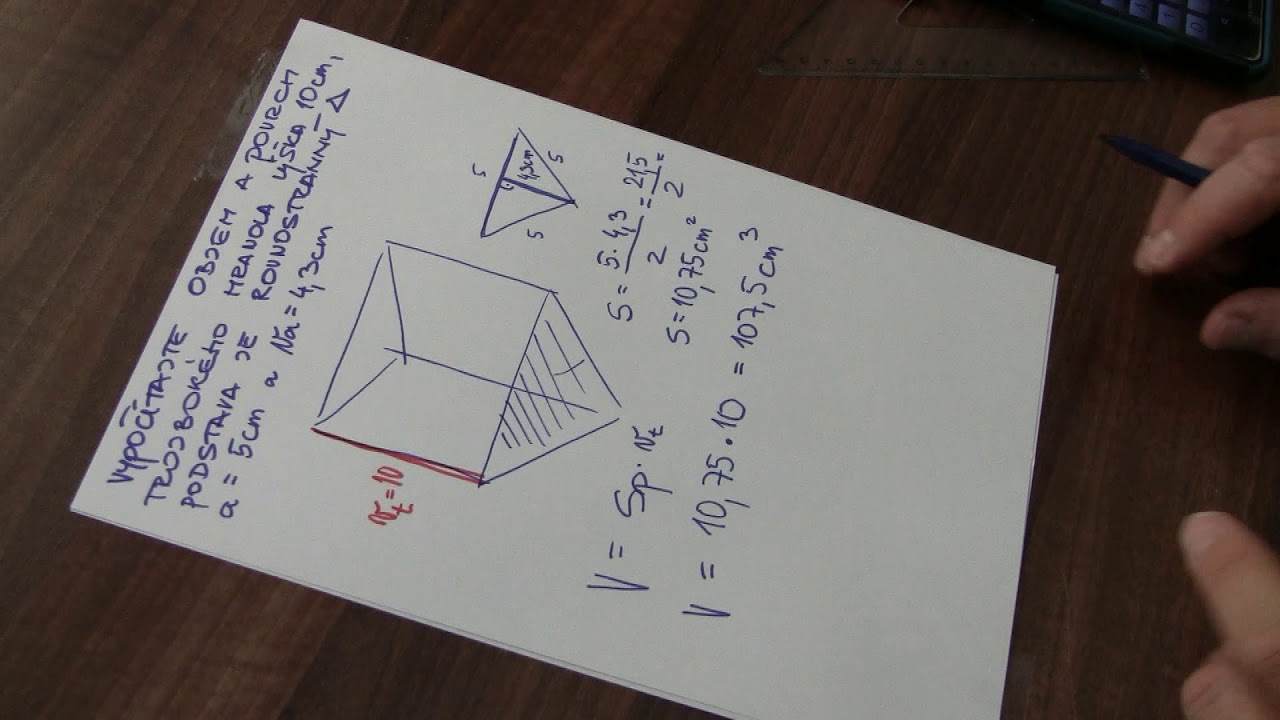 VYPOČÍTAJTE OBJEM A POVRCH
TROJBOKÉHO HRANOLA VÝŠKA 10cm,
PODSTAVA JE ROVNOSTRANNÝ Δ
a = 5cm a va = 4,3cm
5
5
5
4,3cm
vt = 10
S = 5·4,3/2 = 21,5/2 =
S = 10,75 cm²
V = Sp · vt
V = 10,75 · 10 = 107,5 cm³